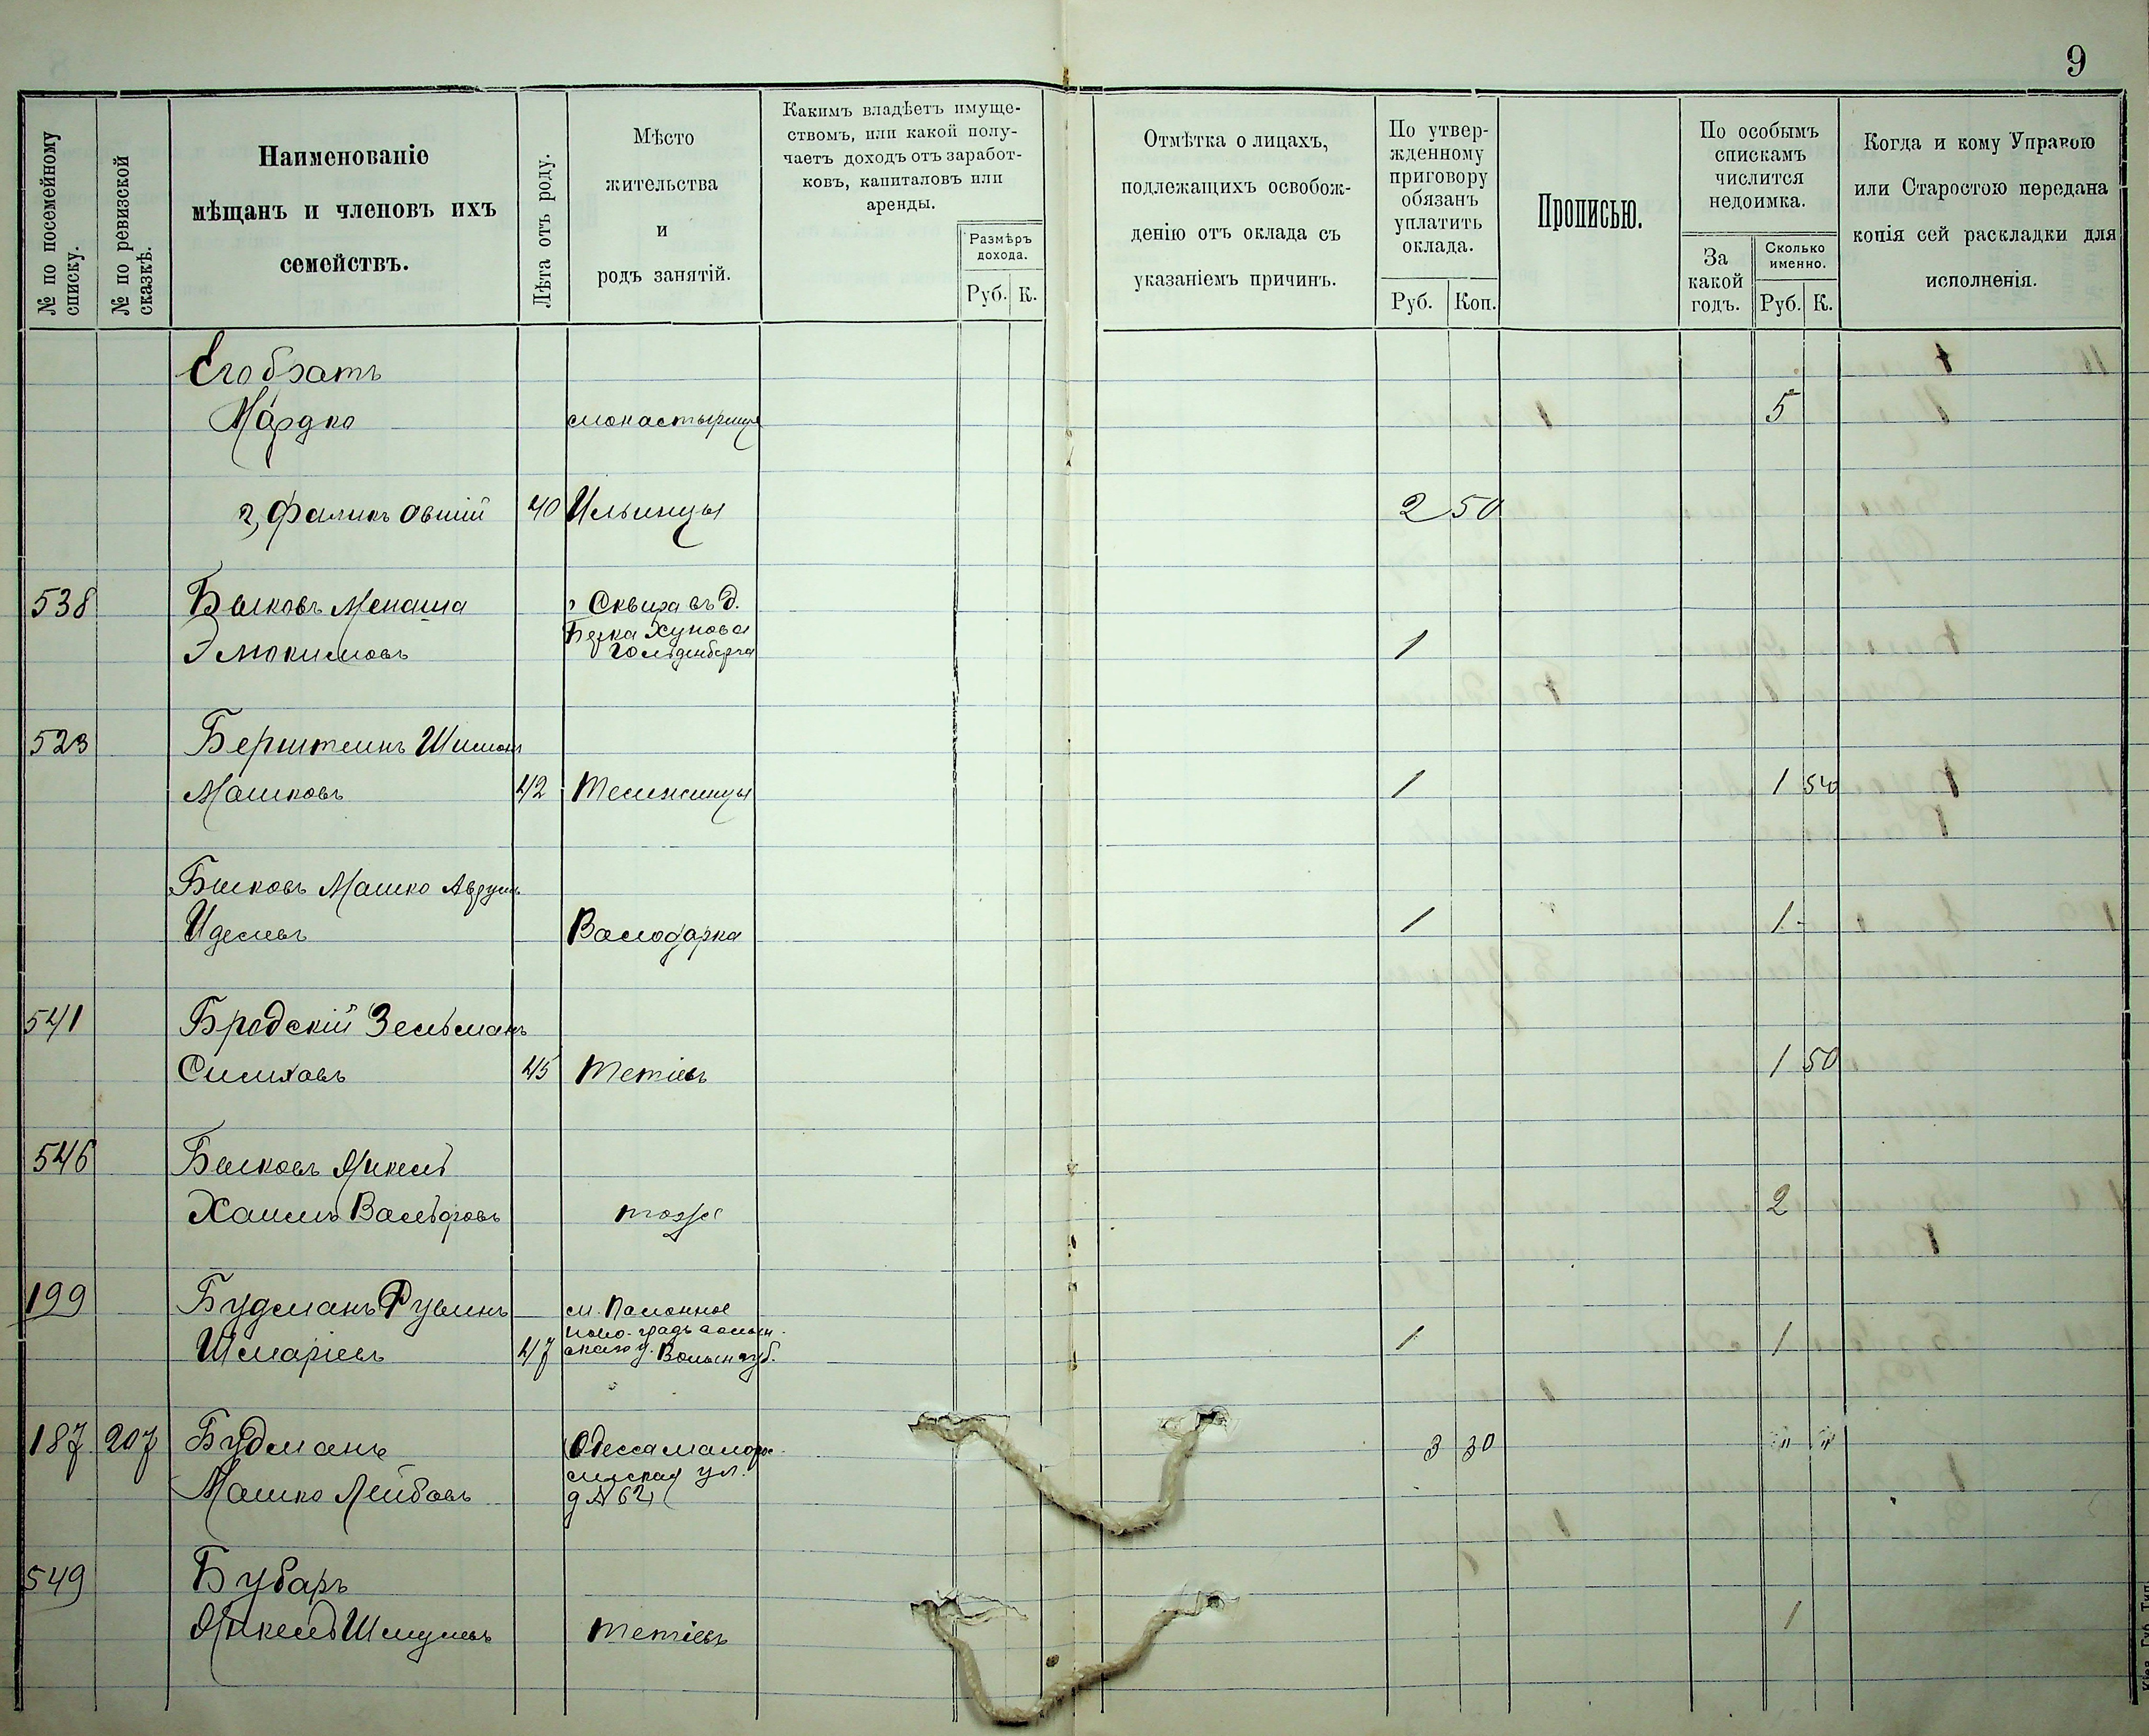 9
№ по посемейному списку.
№ по ревизской сказкѣ.
Наименованіе
мѣщанъ и членовъ ихъ
семействъ.
Лѣта отъ роду.
Мѣсто
жительства
и
родъ занятій.
Какимъ владѣетъ имуще-
ствомъ, или какой полу-
чаетъ доходъ отъ заработ-
ковъ, капиталовъ или
аренды.
Размѣръ
дохода.
Руб. К.
Отмѣтка о лицахъ,
подлежащихъ освобож-
денію отъ оклада съ
указаніемъ причинъ.
По утвер-
жденному
приговору
обязанъ
уплатить
оклада.
Руб. Коп.
Прописью.
По особымъ
спискамъ
числится
недоимка.
За
какой
годъ.
Сколько
именно.
Руб. К.
Когда и кому Управою
или Старостою передана
копія сей раскладки для
исполненія.
Его братъ
Мордко монастырище 5
2, Фаликъ Овшій 40 Ильинцы 2 50
538 Быковъ Менаша Сквира въ д.
Берка Хунова
Гольденберга 1
523 Берштеинъ Шимон
Мошковъ 42 1 1 50
Быковъ Мошко Аврумъ
Иделевъ Володарка 1 1 -
541 Бродскій Зельманъ
45 Тетіевъ 1 50
546 Быковъ Янкель
Хаимъ Вольфовъ тоже 2
199 Будманъ Рувинъ м. Полонное
Шмаріевъ 47 ново-градъ волын-
скаго у. Волын губ. 1 1
187 207 Будманъ Одесса малорос-
сійская ул. 3 30 " "
Мошко Лейбовъ д № 62
549 Бубаръ
Янкель Шмулевъ Тетіевъ 1